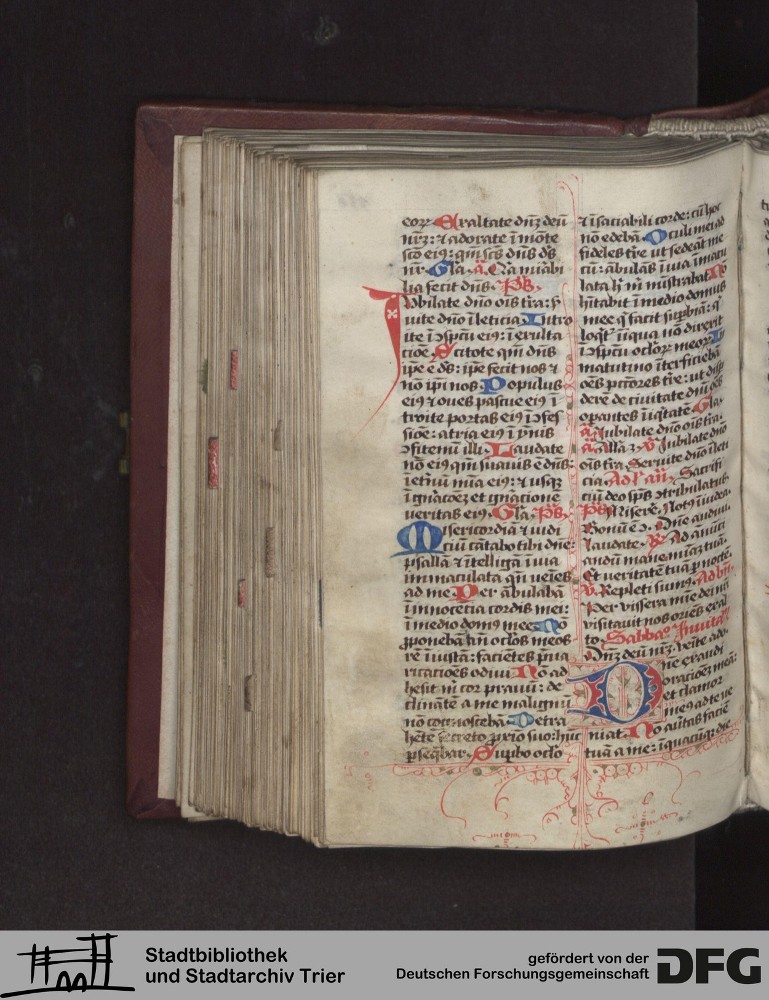 eorꝝ Exaltate dn̄m deū
nr̄m: ⁊ adorate ī mōte
sc̄o eiꝰ: qm̄ sc̄s dn̄s ds̄
nr̄ Gl̄a a. Q̄a mirabi
lia fecit dn̄s. Ps̄.
Jvbilate dn̄o oīs tr̄a: s̄
uite dn̄o ī leticia Intro
ite ī ↄspc̄u eiꝰ: ī exulta
cōe Scitote qm̄ dn̄s
ip̄e ē ds̄: ip̄e fecit nos ⁊
nō ip̄i nos Populus
eiꝰ ⁊ oues pascue eiꝰ ī
troite portas eiꝰ ī ↄfes
sioe: atria eiꝰ ī ymnis
ↄfitemī illi Laudate
nō eiꝰ qm̄ suauis ē dn̄s:
ī et̄nū mīa eiꝰ: ⁊ usqꝫ
ī gn̄acōeꝫ et gn̄acione
ueritas eiꝰ. Gl̄a. Ps̄.
Misericordiā ⁊ iudi
ciū cātabo tibi dn̄e:
psallā ⁊ ītelligā ī uia
immaculata qn̄ ueīes
ad me Per ābulabā
ī īnocētia cordis mei:
ī medio domꝰ mee Nō
ꝓponebā an̄ oclos meos
rē iniustā: faciētes p̄ua
ricatiōes odiui Nō ad
hesit m̄ cor prauū: de
clināte a me malignū
nō cognoscebā Detra
hēte secreto ꝓxīo suo: hūc
ꝑseq̄bar. Supbo oclo
⁊ īsaciabili corde: cū hoc
nō edebā Oculi mei ad
fideles tr̄e ut sedeāt me
cū: ābulās ī uia īmacu
lata h̄ m̄ mīstrabat Nō
hītabit ī medio domus
mee q̄ facit supbiā: q̄
loq̄t̄ īiqua nō direxit
ī ↄspc̄u oclorꝝ meorꝝ In
matutino īterficiebā
oēs pctores tr̄e: ut disp
derē de ciuitate dn̄i oēs
opantes īiq̄tatē Gl̄a.
a. Jubilate dn̄o oīs tr̄a.
a. Alla 3. V̄ Jubilate dn̄o
oīs tr̄a. Seruite dn̄o ī leti
cia Ad l' añ. Sacrifi
ciū deo sp̄s ↄtribulatus.
Ps̄
Bonū ē ↄ. Dn̄e audiui.
laudate. V̄ Ad anūci
andū mane mīaꝫ tuā.
Et ueritatē tuā ꝑ noctē.
V̄. Repleti sumꝰ. Ad bn̄.
Per viscera mīe dei nr̄i
visitauit nos oriēs ex al
to. Sabbō Inuitā
Dn̄m deū nr̄m. venite ado.
Dn̄e exaudi
oracioeꝫ meā:
et clamor
meꝰ ad te ue
niat Nō auertas faciē
tuā a me: ī quacūqꝫ die
Stadtbibliothek
und Stadtarchiv Trier
gefördert von der
Deutschen Forschungsgemeinschaft
DFG